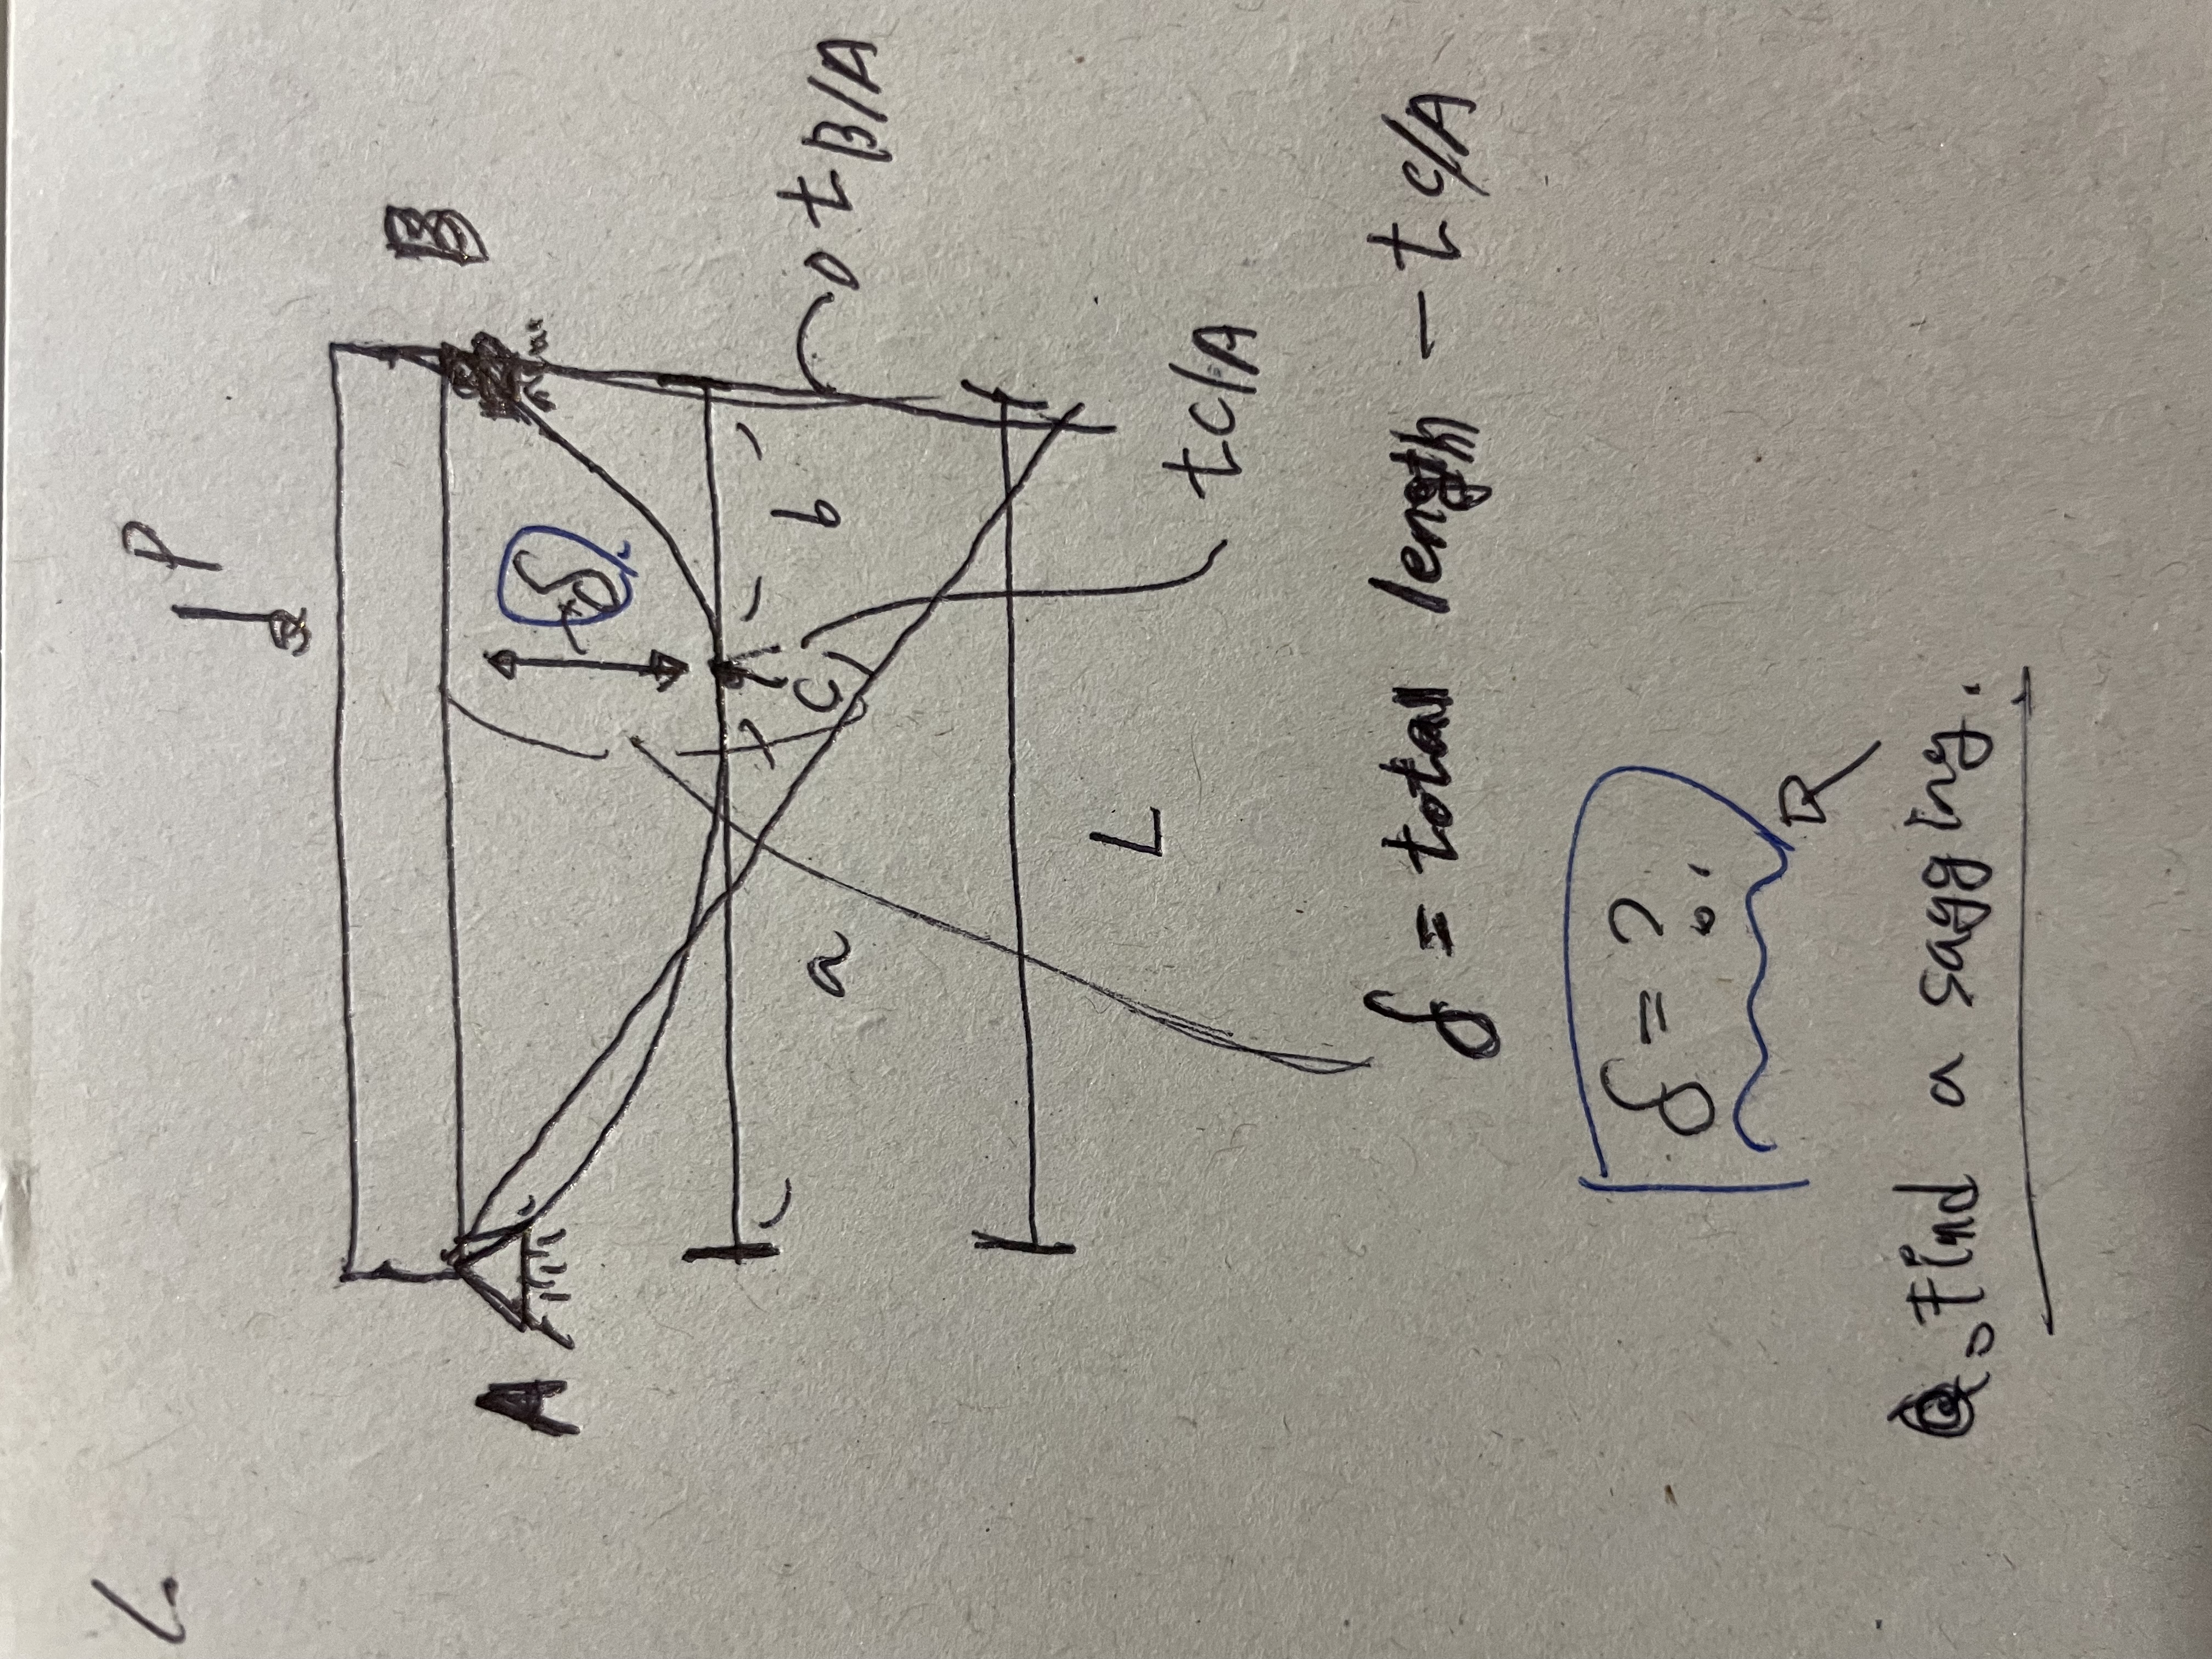 1.
P
A
B
δ
C
a
b
t B/A
L
t C/A
δ = total length - t C/A
δ = ?
Q. Find a sagging.